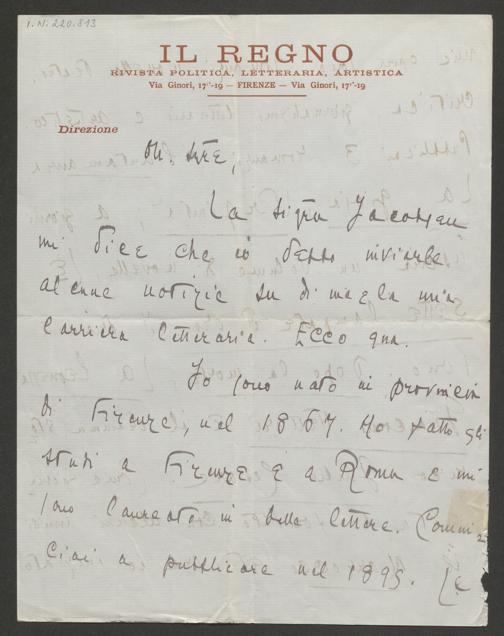 I.N. 220.813
IL REGNO
RIVISTA POLITICA, LETTERARIA, ARTISTICA
Via Ginori, 17-19 — FIRENZE — Via Ginori, 17-19
Direzione
La sigra Jacobsen
mi dice che io debbo inviarle
alcune notizie su di me e la mia
carriera letteraria. Ecco qua.
Io sono nato in provincia
di Firenze, nel 1867. Ho fatto gli
studi a Firenze e a Roma e mi
sono laureato in belle lettere. Comin
ciai a pubblicare nel 1895. Le